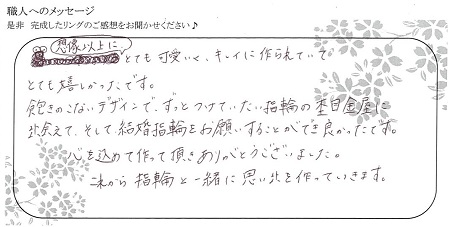 職人へのメッセージ
是非 完成したリングのご感想をお聞かせください♪
想像以上に
とても可愛いく、キレイに作られていて
とても嬉しかったです。
飽きのこないデザインで、ずっとつけていたい指輪の杢目金屋に
出会えて、そして結婚指輪をお願いすることができ良かったです。
心を込めて作って頂きありがとうございました。
これから指輪と一緒に思い出を作っていきます。